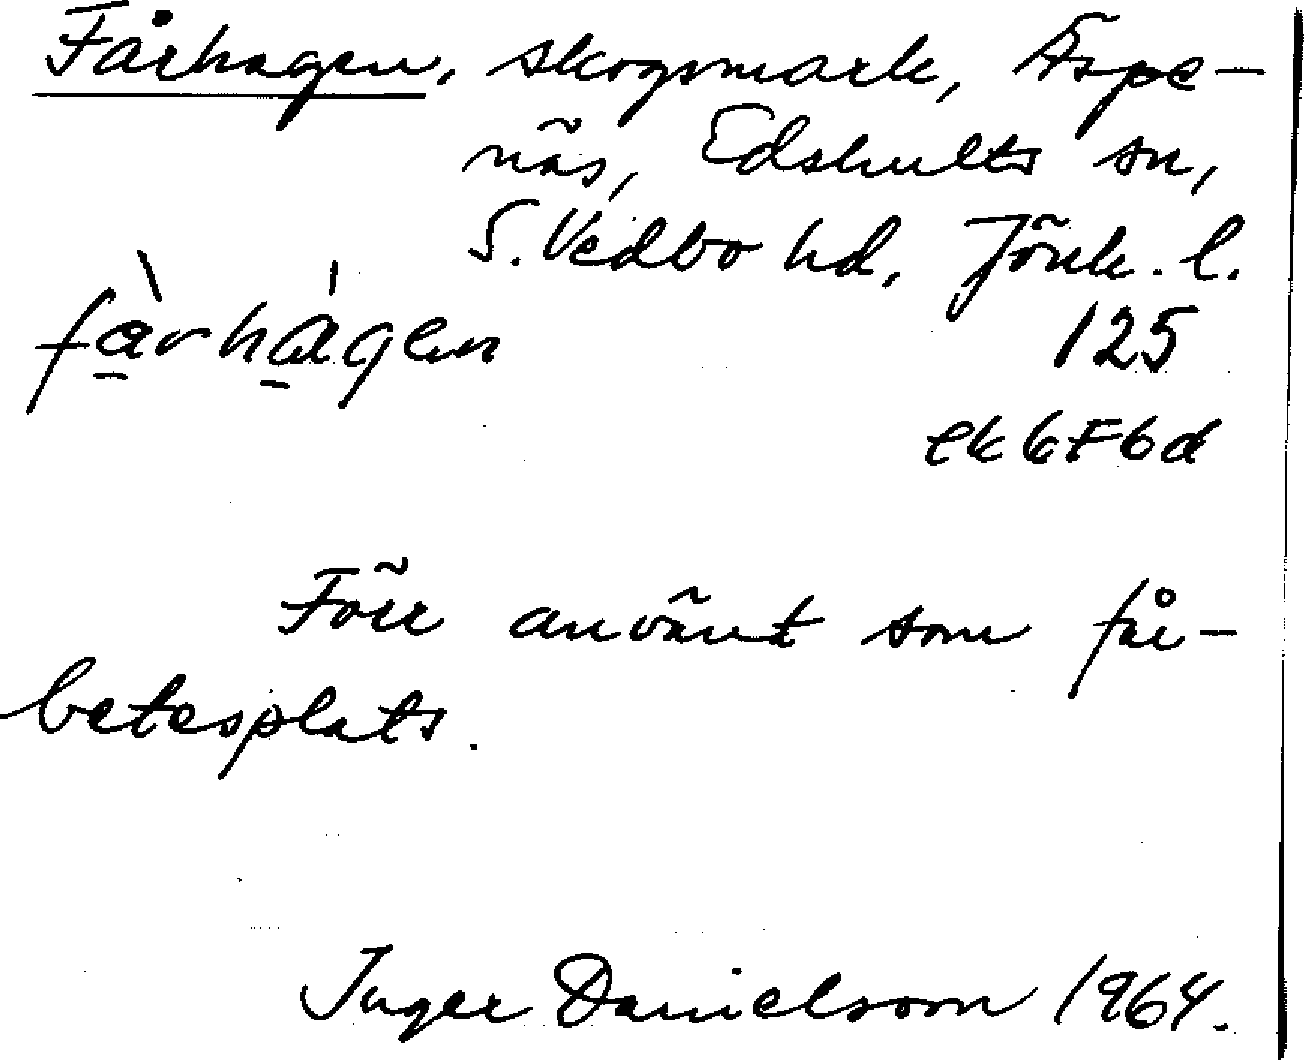 Fårhagen, skogsmark, Äspe-
näs, Edshults sn,
S. Vedbo hd, Jönk. l.
fàrhágen 125
ek 6F6d
Förr använt som får-
betesplats.
Inger Danielsson 1964.